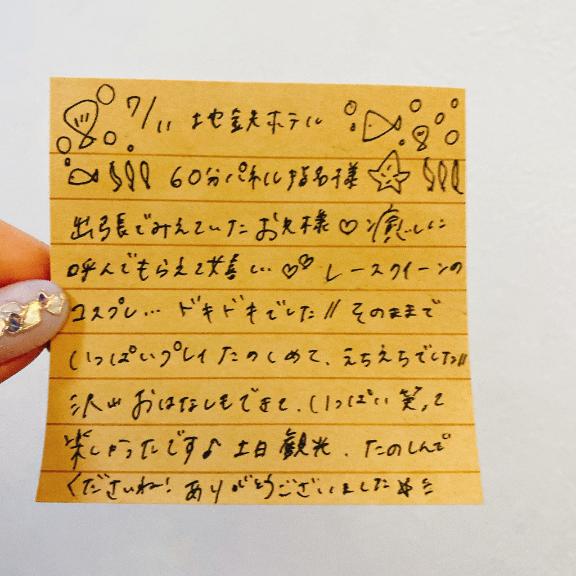 7/11 地鉄ホテル
60分パネル指名様
出張でみえていたお兄様♡癒しに
呼んでもらえて嬉しい♡♡ レースクイーンの
コスプレ… ドキドキでした!! そのままで
いっぱいプレイたのしめて、えちえちでした!!
沢山おはなしもできて、いっぱい笑って
楽しかったです♪ 土日観光、たのしんで
くださいね! ありがとうございました